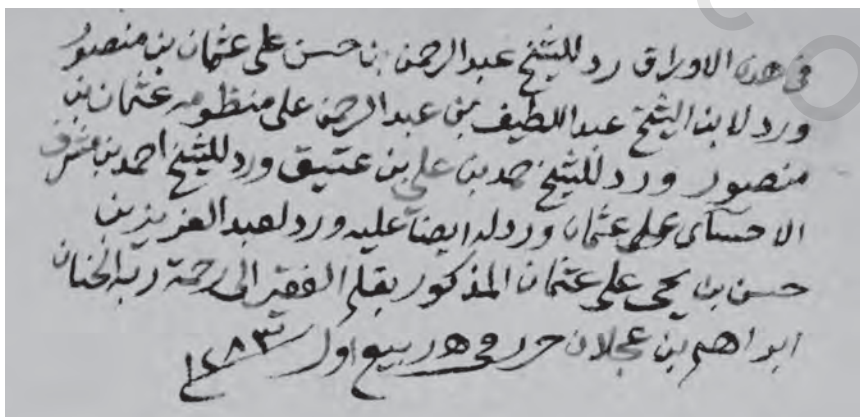 في هذه الاوراق رد للشيخ عبدالرحمن بن حسن على عثمان بن منصور
ورد لابنه الشيخ عبداللطيف بن عبدالرحمن على منظومه عثمان بن
منصور ورد للشيخ حمد بن علي بن عتيق ورد للشيخ احمد بن مشرف
الاحسائي على عثمان ورد له ايضا عليه ورد لعبدالعزيز بن
حسن بن يحيى على عثمان المذكور بقلم الفقير الى رحمة ربه الحنان
ابراهيم بن عجلان حرر في ٥ ربيع اول ١٢٨٣